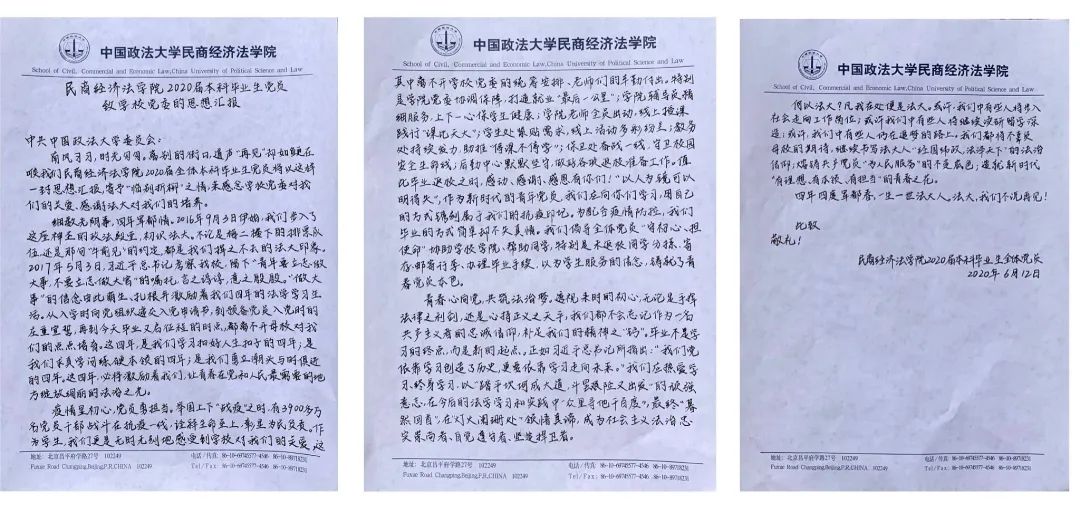 中国政法大学民商经济法学院
School of Civil, Commercial and Economic Law,China University of Political Science and Law
民商经济法学院2020届本科毕业生党员
致学校党委的思想汇报
中共中国政法大学委员会:
南风习习,时光匆匆。离别的街口,道声“再见”却如鲠在
喉。我们民商经济法学院2020届全体本科毕业生党员将以这样
一封思想汇报,寄予“临别折柳”之情,来感念学校党委对我
们的关爱、感谢法大对我们的培养。
细数光阴事,四年军都情。2016年9月3日伊始,我们步入了
这座神圣的政法殿堂,初识法大。不论是梅二楼下的排队队
伍,还是那间“牛前见”的约定,都是我们挥之不去的法大印象。
2017年5月3日,习近平总书记考察我校,留下“青年要立志做
大事,不要立志做大官”的嘱托,言之谆谆,意之殷殷。“做大
事”的信念由此萌生、扎根并激励着我们四年的法学学习生
活。从入学时向党组织递交入党申请书,到预备党员入党时的
庄重宣誓,再到今天毕业又启征程的时点,都离不开母校对我
们的点点培育。这四年,是我们学习扣好人生扣子的四年;是
我们求真学问、练硬本领的四年;是我们勇立潮头与时俱进
的四年。这四年,必将激励着我们,让青春在党和人民最需要的地
方绽放绚丽的法治之光。
疫情显初心,党员勇担当。举国上下“战疫”之时,有3900多万
名党员干部战斗在抗疫一线,诠释生命至上,彰显为民负责。作
为学生,我们更是无时无刻地感受到学校对我们的关爱,这
地址: 北京昌平府学路27号 102249
电话/传真: 86-10-69745577-4546 86-10-89718231
Fuxue Road Changping,Beijing,P.R,CHINA 102249
Tel/Fax: 86-10-69745577-4546 86-10-89718231
中国政法大学民商经济法学院
School of Civil, Commercial and Economic Law,China University of Political Science and Law
其中离不开学校党委的统筹安排、老师们的辛勤付出。特别
是学院党委协调保障,打造就业“最后一公里”;学院辅导员精
细服务,上下一心保学生健康;学院老师全员出动,线上授课
践行“课比天大”;学生处紧贴需求,线上活动多彩纷呈;教务
处持续发力,助推“停课不停学”;保卫处备战一线,守卫校园
安全生命线;后勤中心默默坚守,做好各项返校准备工作。值
此毕业返校之时,感动、感谢、感恩有你们!“以人为镜可以
明得失”,作为新时代的青年党员,我们应向你们学习,用自己
的方式镌刻属于我们的抗疫印记。为配合疫情防控,我们
毕业的方式简单却不失真情。我们倡导全体党员“守初心、担
使命”协助学校学院,帮助同学,特别是未返校同学分拣、寄
存、邮寄行李、办理毕业手续,以为学生服务的信念,铸就了青
春党员本色。
青春心向党,共筑法治梦。遥忆来时的初心,无论是手捍
法律之利剑,还是心持正义之天平,我们都不会忘记作为一名
共产主义者的忠诚信仰,补足我们的精神之“钙”。毕业不是学
习的终点,而是新的起点。正如习近平总书记所指出:“我们党
依靠学习创造了历史,更要依靠学习走向未来。”我们应热爱学
习、终身学习,以“踏平坎坷成大道,斗罢艰险又出发”的顽强
意志,在今后的法学学习和实践中“众里寻他千百度”,最终“蓦
然回首”,在灯火阑珊处”领悟真谛,成为社会主义法治忠
实崇尚者、自觉遵守者、坚定捍卫者。
地址: 北京昌平府学路27号 102249
电话/传真: 86-10-69745577-4546 86-10-89718231
Fuxue Road Changping,Beijing,P.R,CHINA 102249
Tel/Fax: 86-10-69745577-4546 86-10-89718231
中国政法大学民商经济法学院
School of Civil, Commercial and Economic Law,China University of Political Science and Law
何以法大?凡我在处便是法大。或许,我们中有些人将步入
社会走向工作岗位;或许我们中有些人将继续读研留学深
造;或许,我们中有些人仍在追梦的路上,我们都将不负
母校的期待,继续书写法大人“经国纬政,法泽天下”的法治
信仰;熔铸共产党员“为人民服务”的不变底色;造就新时代
“有理想、有本领、有担当”的青春之花。
四年四度军都春,一生一世法大人。法大,我们不说再见!
此致
敬礼!
民商经济法学院2020届本科毕业生全体党员
2020年6月12日
地址: 北京昌平府学路27号 102249
电话/传真: 86-10-69745577-4546 86-10-89718231
Fuxue Road Changping,Beijing,P.R,CHINA 102249
Tel/Fax: 86-10-69745577-4546 86-10-89718231